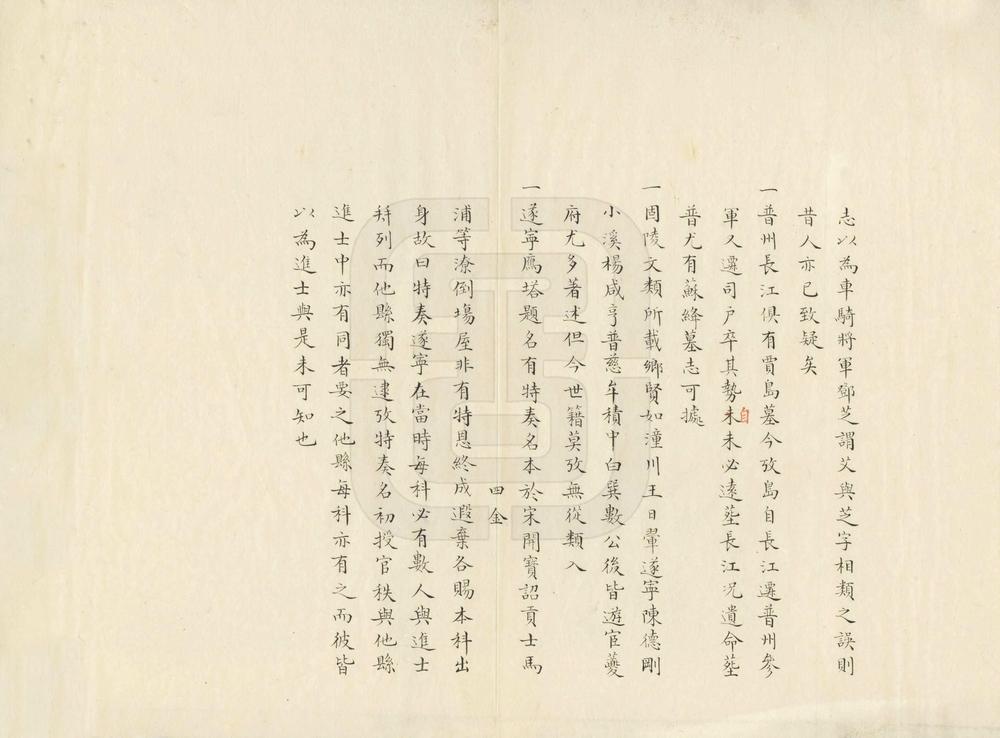 志以為車騎將軍鄧芝謂艾與芝字相類之誤則
昔人亦已致疑矣
一普州長江俱有賈島墓今攷島自長江遷普州參
軍又遷司戶卒其勢未自未必遠塟長江況遺命塟
普尤有蘇絳墓志可據
一固陵文類所載鄉賢如潼川王日翬遂寧陳德剛
小溪楊咸亨普慈牟積中白巽數公後皆遊宦夔
府尤多著述但今世籍莫攷無從類入
一遂寧鴈塔題名有特奏名本於宋開寶詔貢士馬
四金
浦等潦倒塲屋非有特恩終成遐棄各賜本科出
身故曰特奏遂寧在當時每科必有數人與進士
並列而他縣獨無逮攷特奏名初授官秩與他縣
進士中亦有同者要之他縣每科亦有之而彼皆
以為進士與是未可知也